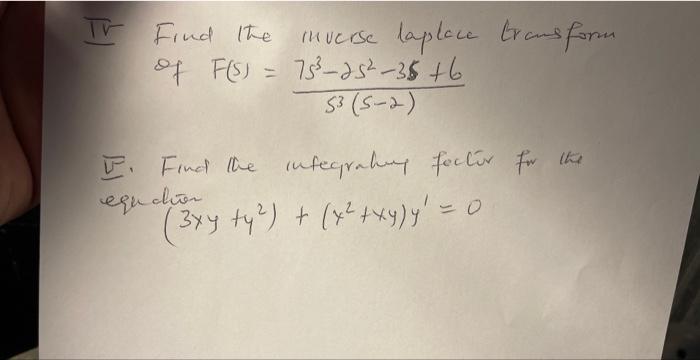 IV Find the inverse laplace transform
of F(s) = 7s³-2s²-3s+6
s³(s-2)
V. Find the integrating factor for the
equation
(3xy+y²) + (x²+xy)y' = 0